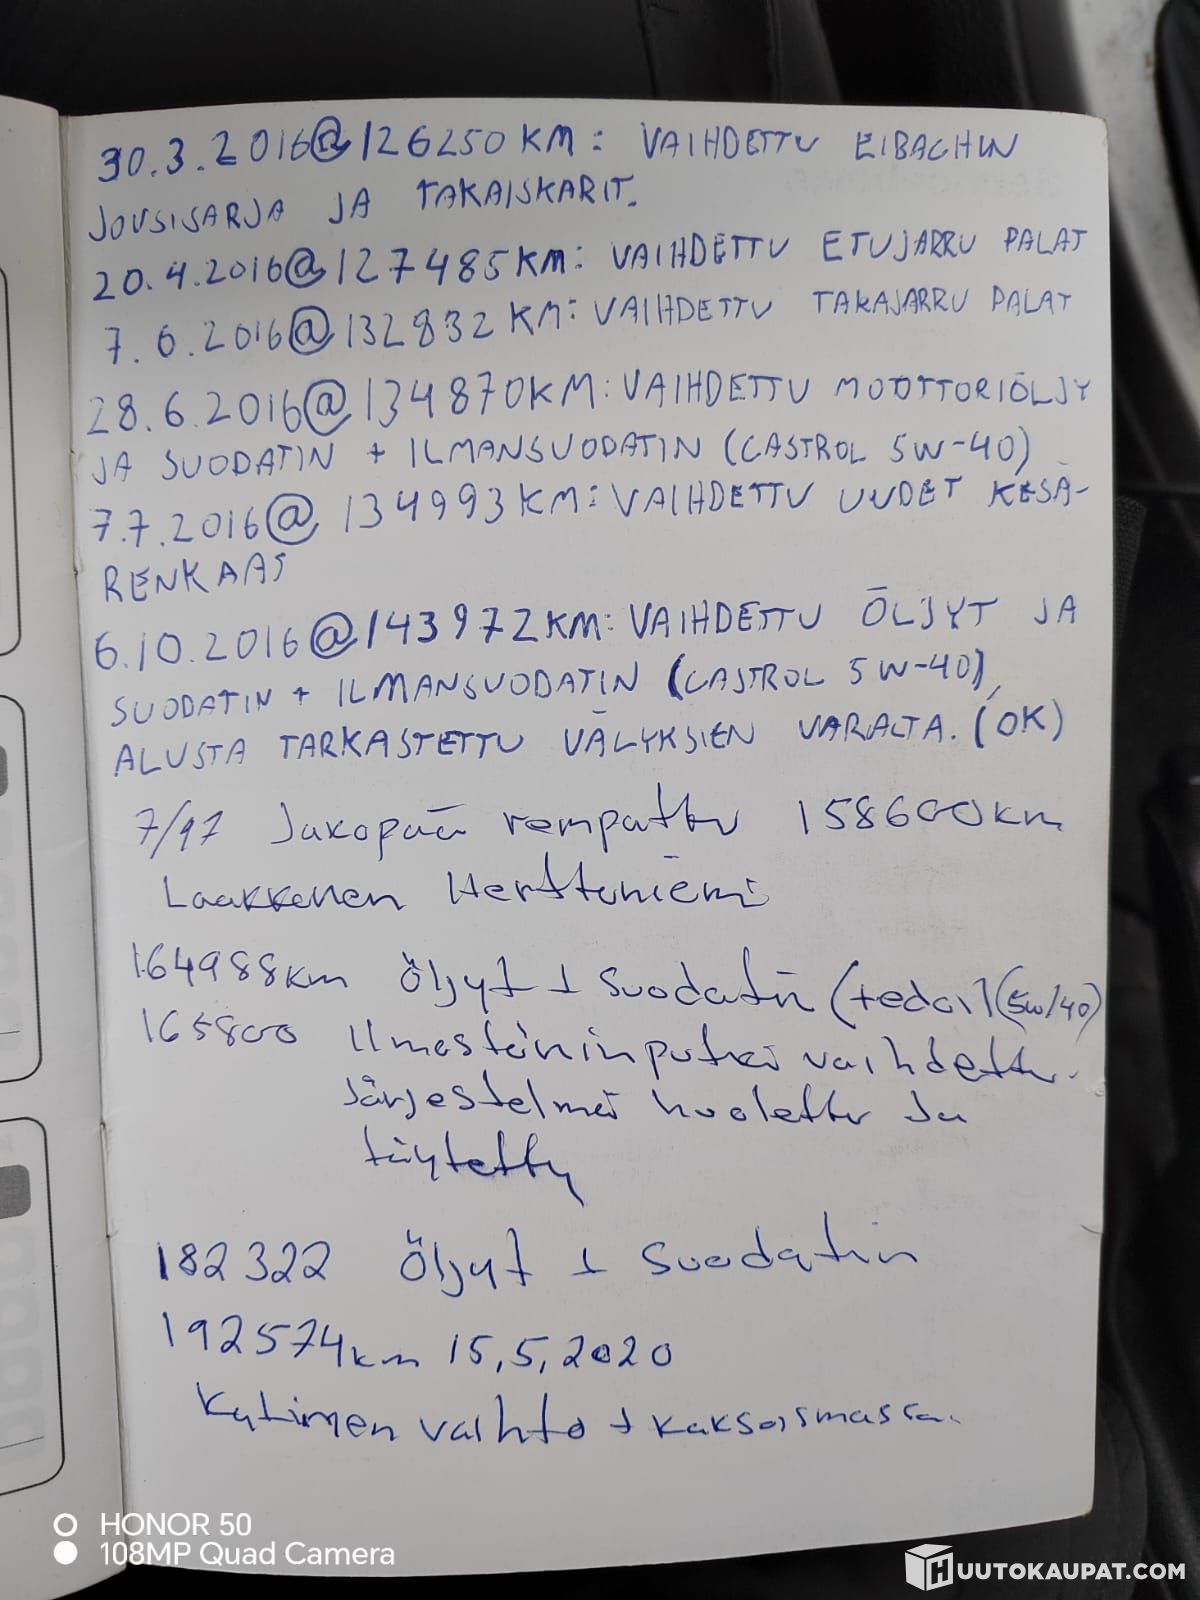 30.3.2016@126250KM: VAIHDETTU EIBACHIN
JOUSISARJA JA TAKAISKARIT.
20.4.2016@127485KM: VAIHDETTU ETUJARRU PALAT
7.6.2016@132832KM: VAIHDETTU TAKAJARRU PALAT
28.6.2016@134870KM: VAIHDETTU MOOTTORIÖLJY
JA SUODATIN + ILMANSUODATIN (CASTROL 5W-40)
7.7.2016@134993KM: VAIHDETTU UUDET KESÄ-
RENKAAS
6.10.2016@143972KM: VAIHDETTU ÖLJYT JA
SUODATIN + ILMANSUODATIN (CASTROL 5W-40),
ALUSTA TARKASTETTU VÄLYKSIEN VARALTA. (OK)
7/97 Jakopää rempattu 158600km
Laakkonen Herttoniemi
164988km Öljyt + Suodatin (tedoil (5w/40)
165800 Ilmastoninputki vaihdettu.
Järjestelmä huolettu Ja
täytetty
182322 Öljyt + Suodatin
192574km 15,5,2020
Kytimen vaihto + kaksoismassa.
HONOR 50
108MP Quad Camera
HUUTOKAUPAT.COM